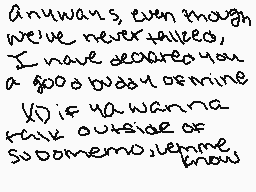 anyways, even though
we've never talked,
I have declared you
a good buddy of mine
XD if ya wanna
talk outside of
sudomemo, lemme
know